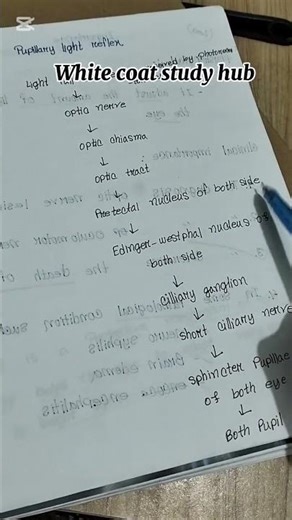 CapCut
Pupillary light reflex
Light
White coat study hub
optic nerve
↓
optic chiasma
↓
optic tract
↓
Pretectal nucleus of both side
↓
Edinger-westphal nucleus of
both side
↓
cilliary gangtion
↓
short cilliary nerve
↓
sphincter Pupillae
of both eye
↓
Both Pupil